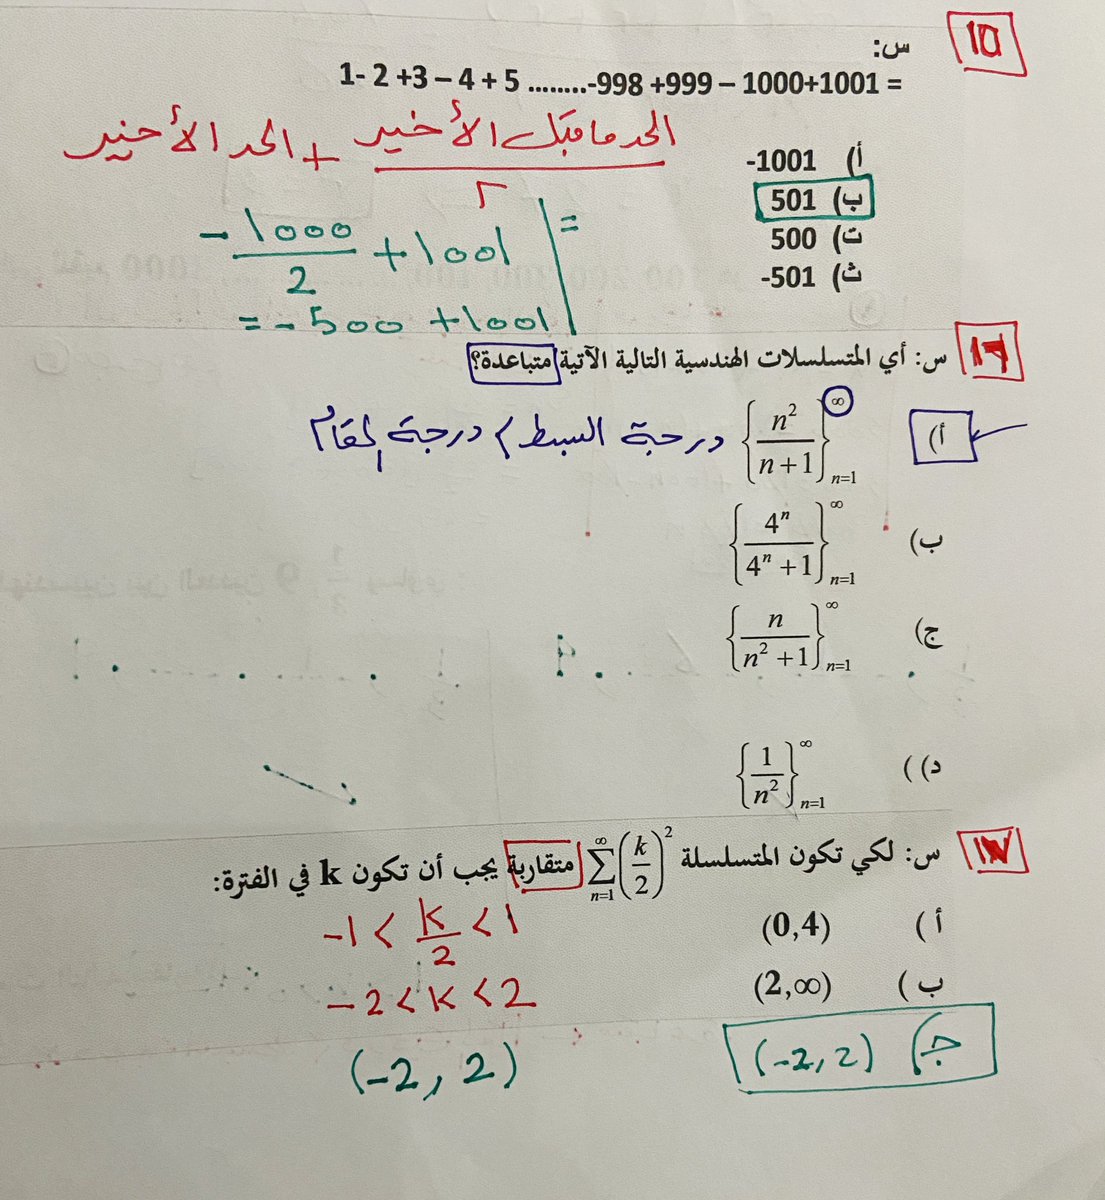 15
س:
1- 2 +3 – 4 + 5 ........-998 +999 – 1000+1001 =
الحد ما قبل الأخير / ٢ + الحد الأخير
أ) -1001
ب) 501
ت) 500
ث) -501
= - 1000 / 2 + 1001
= - 500 + 1001
16
س: أي المتسلسلات الهندسية التالية الآتية متباعدة؟
أ) {n² / n+1}∞ n=1 درجة البسط > درجة المقام
ب) {4ⁿ / 4ⁿ +1}∞ n=1
ج) {n / n² +1}∞ n=1
د) ) {1 / n²}∞ n=1
17
س: لكي تكون المتسلسلة ∑∞ n=1 (k/2)² متقاربة يجب أن تكون k في الفترة:
أ ) (0,4)
-1 < k/2 < 1
ب ) (2,∞)
-2 < k < 2
جـ) (-2, 2)
(-2, 2)